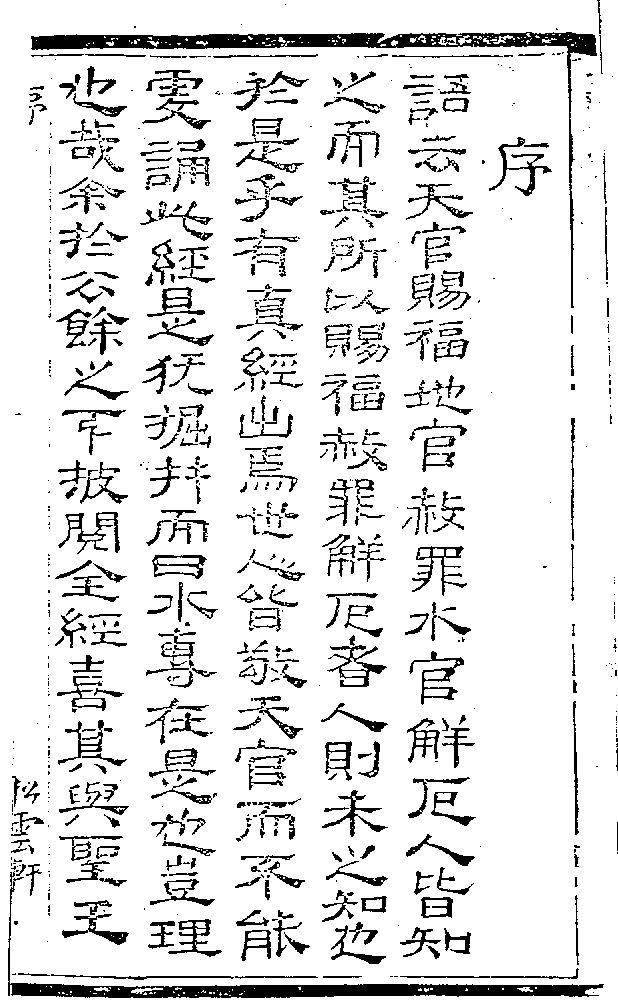 序
語云天官賜福地官赦罪水官解厄人皆知
之而其所以賜福赦罪解厄者人則未之知也
於是乎有真經出焉世人皆敬天官而不能
虔誦此經是犹掘井而曰水專在是也豈理
也哉余於公餘之下披閱全經喜其與聖王
序
松雲軒